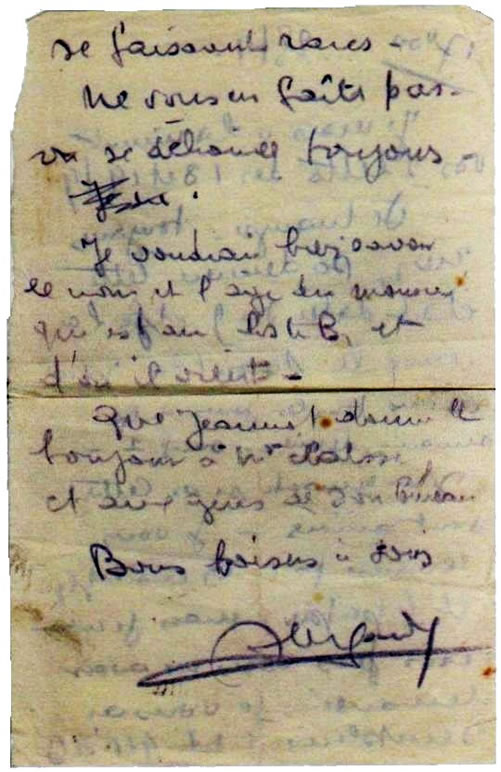 se faisant rares -
Ne vous en faîte pas
on se débrouille toujours -
Je voudrais bien savoir
le nom et l'age du monsieur
qui est au et
d'où il vient -
Que Jeannot donne le
bonjour à Mr
et aux gens de son bureau
Bons baisers à tous